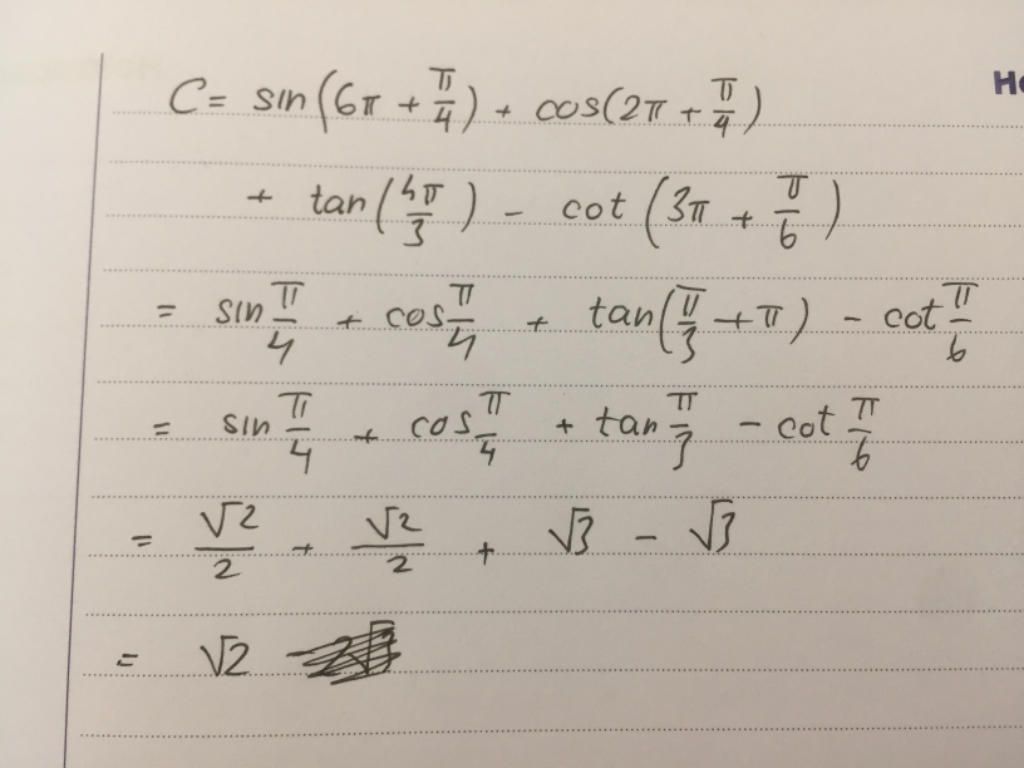 C = sin(6π + π/4) + cos(2π + π/4)
+ tan(4π/3) - cot(3π + π/6)
= sin π/4 + cos π/4 + tan(π/3 + π) - cot π/6
= sin π/4 + cos π/4 + tan π/3 - cot π/6
= √2/2 + √2/2 + √3 - √3
= √2